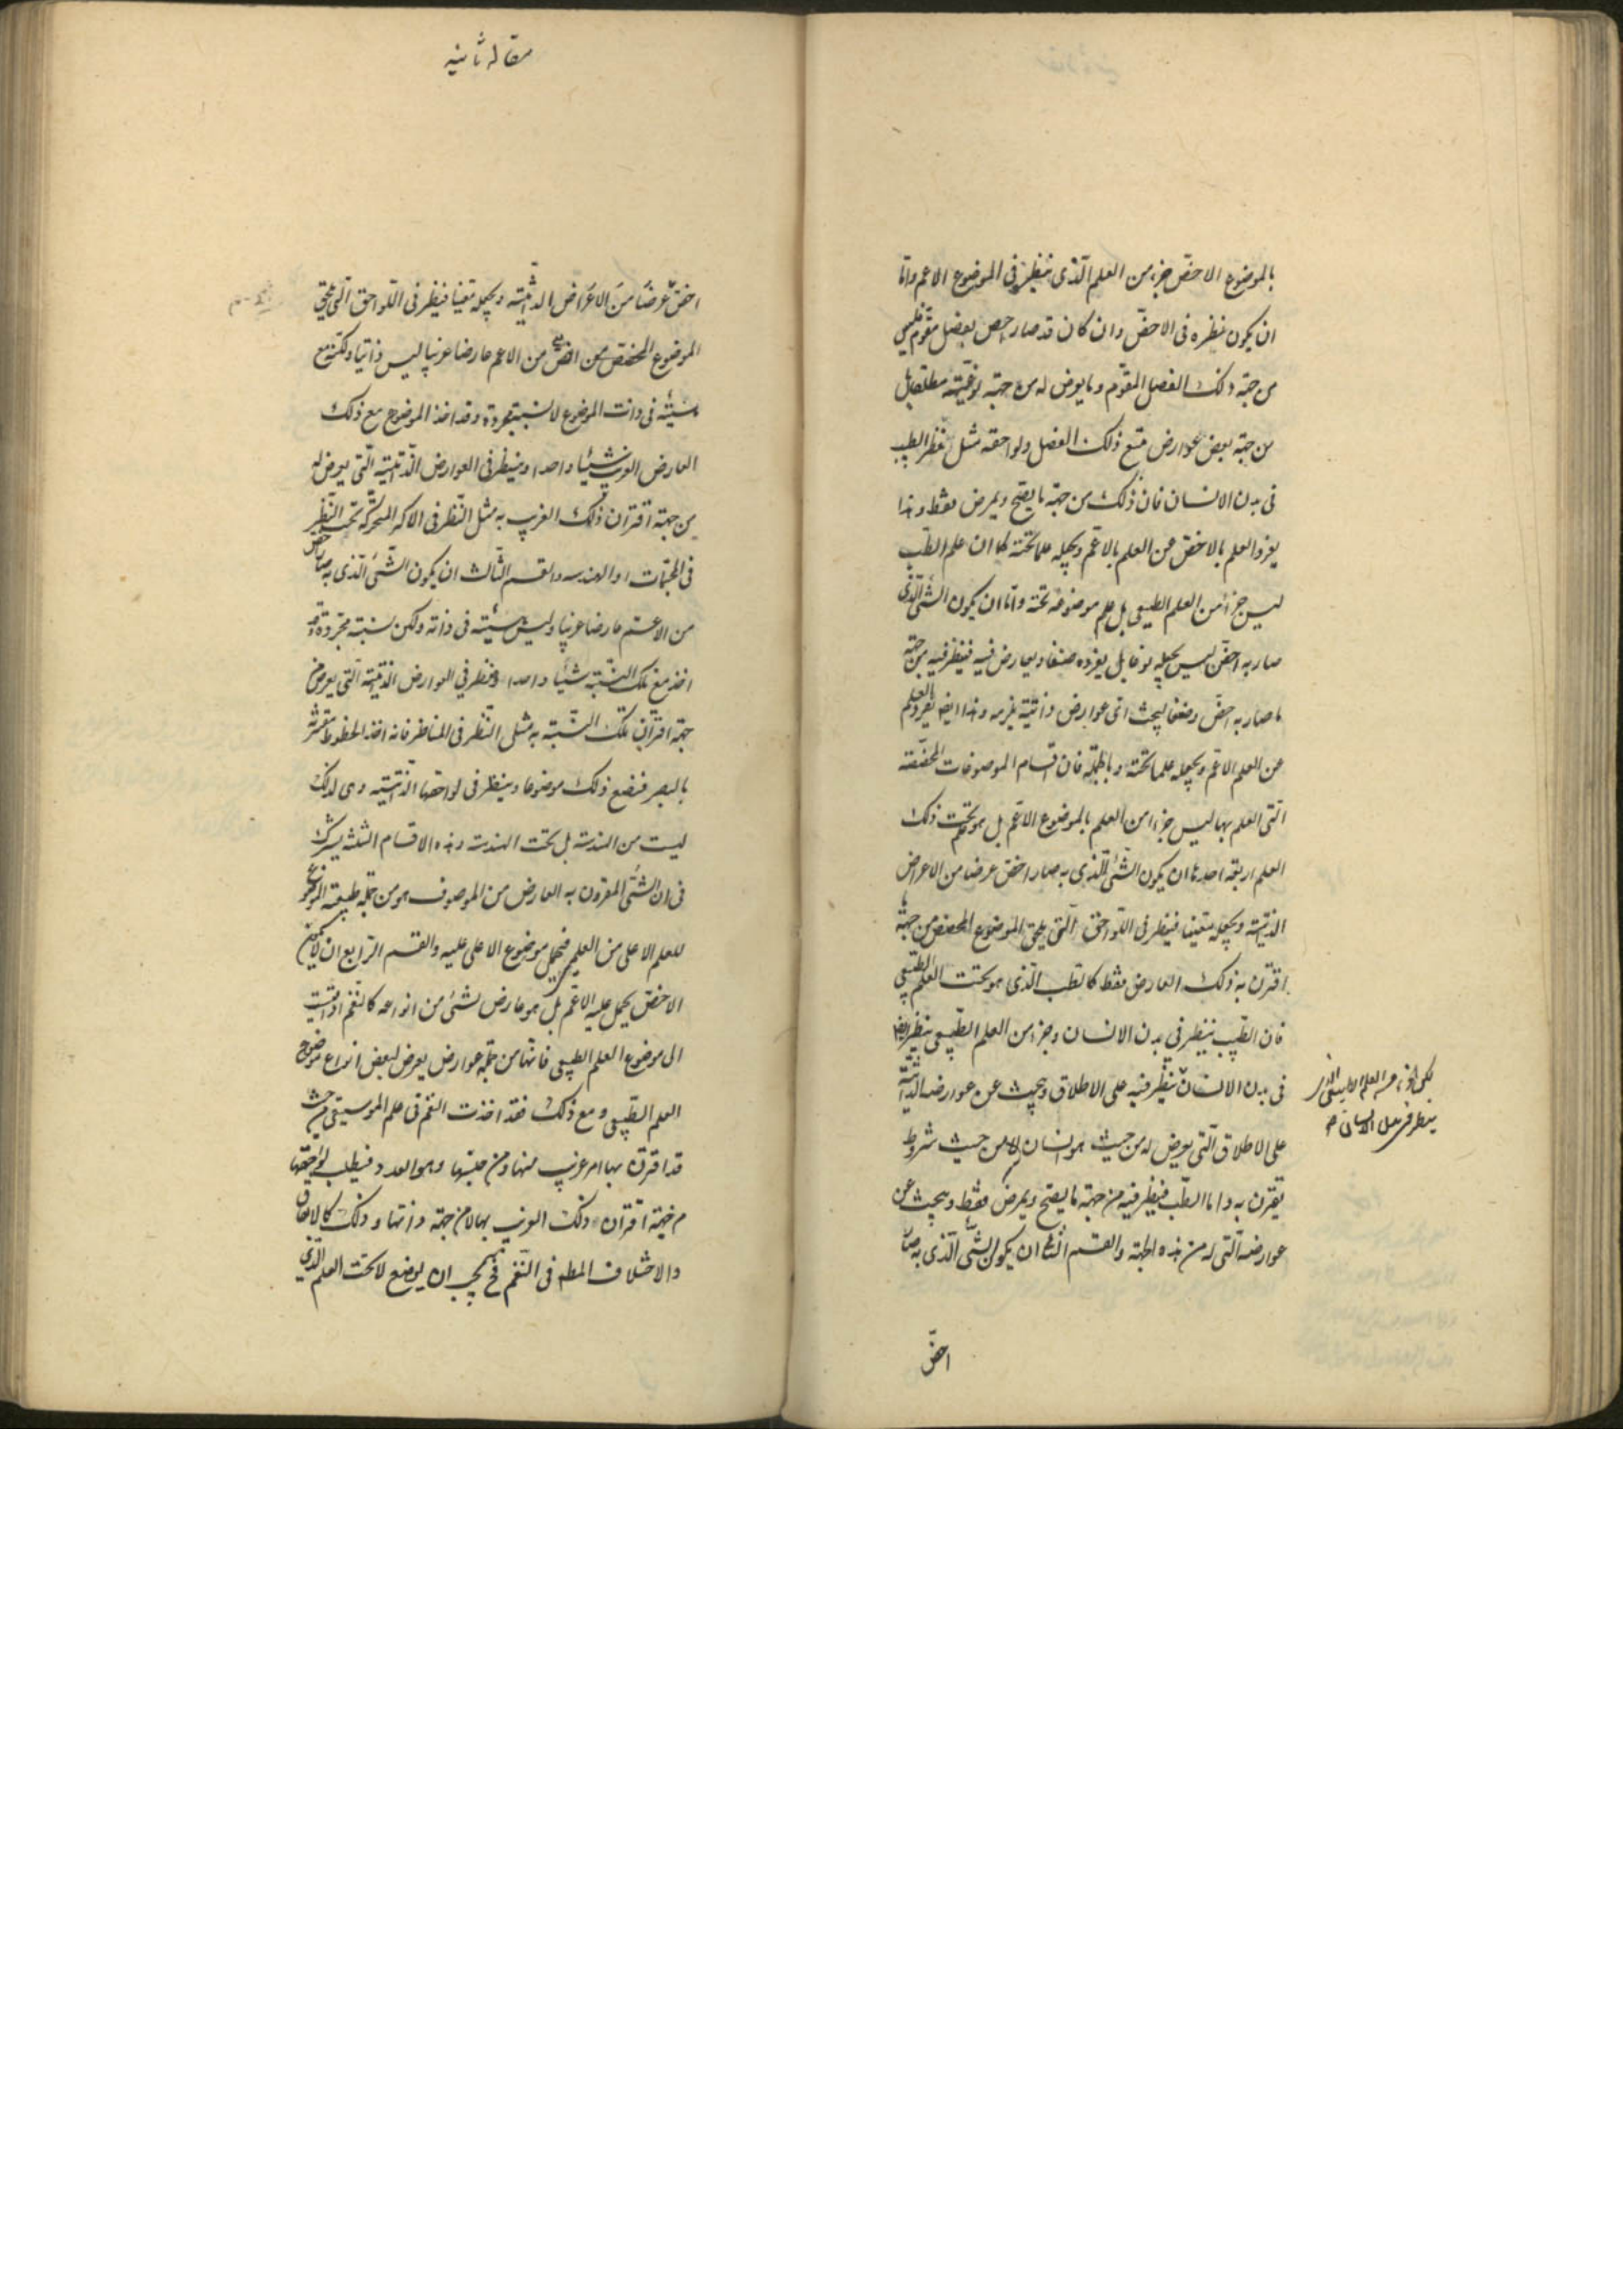 بالموضوع الاخص جزء من العلم الذى ينظر فى الموضوع الاعم واما
ان يكون نظره فى الاخص وان كان قد صار اخص بفصل مقوم فليس
من جهة ذلك الفصل المقوم وما يعرض له من جهة نوعيته مطلقا بل
من جهة بعض عوارض تتبع ذلك الفصل ولواحقه مثل نظر الطبيب
فى بدن الانسان فان ذلك من جهة ما يصح ويمرض فقط وهذا
يفرد العلم بالاخص عن العلم بالاعم ويجعله علما تحته كما ان علم الطب
ليس جزأ من العلم الطبيعى بل علم موضوعه تحته واما ان يكون الشئ الذى
صار به اخص ليس يجعله نوعا بل يفرده صنفا ويعارض فيه فينظر فيه من جهة
ما صار به اخص وصنفا ليبحث اى عوارض ذاتية يلزمه وهذا ايضا يفرد العلم
عن العلم الاعم ويجعله علما تحته وبالجملة فان اقسام الموضوعات المخصصة
التى العلم بها ليس جزءا من العلم بالموضوع الاعم بل هو تحت ذلك
العلم اربعة احدها ان يكون الشئ الذى به صار اخص عرضا من الاعراض
الذاتية ويجعله معينا فينظر فى اللواحق التى يلحق الموضوع المخصص من جهة ما
اقترن به ذلك العارض فقط كالطب الذى هو تحت العلم الطبيعى
فان الطب ينظر فى بدن الانسان وجزء من العلم الطبيعى ينظر ايضا
فى بدن الانسان ينظر فيه على الاطلاق ويبحث عن عوارضه الذاتية
على الاطلاق التى يعرض له من حيث هو انسان لا من حيث شروط
يقترن به واما الطب فينظر فيه من جهة ما يصح ويمرض فقط ويبحث عن
عوارضه التى له من هذه الجهة والقسم الثانى ان يكون الشئ الذى به صار
اخص
لكن الجزء من العلم الطبيعى الذى
ينظر فى بدن الانسان
مقاله ثانيه
اخص عرضا من الاعراض الذاتية ويجعله معينا فينظر فى اللواحق التى تلحق
الموضوع المخصص من الاعم عارضا غريبا ليس ذاتيا ولكنه مع
هيئة فى ذات الموضوع لا نسبة مجردة وقد اخذ الموضوع مع ذلك
العارض الغريب شيئا واحدا وينظر فى العوارض الذاتية التى يعرض له
من جهة اقتران ذلك الغريب به مثل النظر فى الاكر المتحركة تحت النظر
فى المجسمات او الهندسه والقسم الثالث ان يكون الشئ الذى به صار اخص
من الاعم عارضا غريبا وليس هيئة فى ذاته ولكن نسبة مجردة وقد
اخذ مع تلك النسبة شيئا واحدا وينظر فى العوارض الذاتية التى يعرض
جهة اقتران تلك النسبة به مثل النظر فى المناظر فانه اخذ الخطوط مقترنة
بالبصر فتضع ذلك موضوعا وينظر فى لواحقها الذاتية وهى لذلك
ليست من الهندسة بل تحت الهندسة وهذه الاقسام الثلثه يشترك
فى ان الشئ المقرون به العارض من الموصوف هو من جملة طبيعة الموضوع
للعلم الاعلى من العلمين فيحمل موضوع الاعلى عليه والقسم الرابع ان لا يكون
الاخص يحمل عليه الاعم بل هو عارض لشئ من انواعه كالنغم اذا قيست
الى موضوع العلم الطبيعى فانها من جملة عوارض يعرض لبعض انواع موضوع
العلم الطبيعى ومع ذلك فقد اخذت النغم فى علم الموسيقى من حيث
قد اقترن بها امر غريب منها ومن جنسها وهو العدد فيطلب لواحقها
من جهة اقتران ذلك الغريب بها لا من جهة ذاتها وذلك كالاتفاق
والاختلاف المط فى النغم فح يجب ان يوضع لا تحت العلم الذى